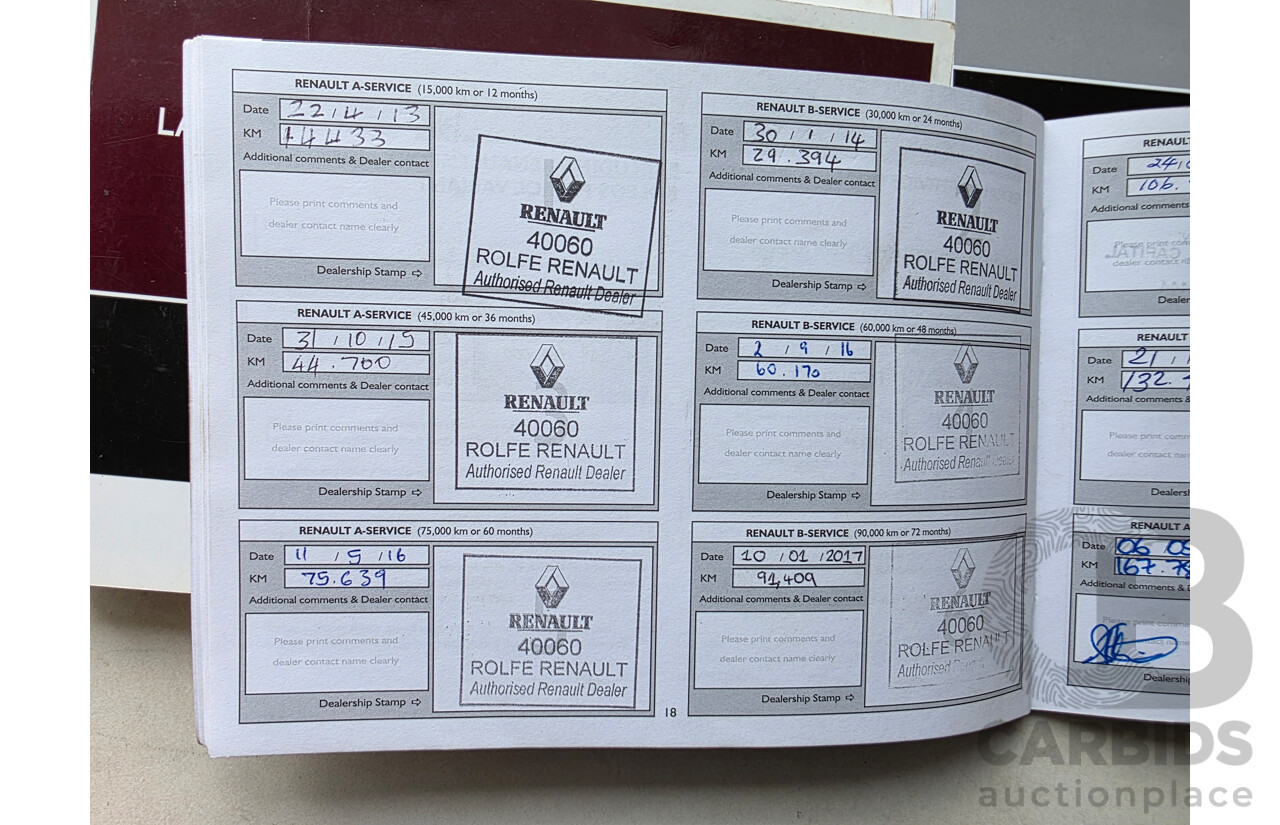 LA
RENAULT A-SERVICE (15,000 km or 12 months)
Date 22 / 4 / 13
KM 14433
Additional comments & Dealer contact
Please print comments and
dealer contact name clearly
Dealership Stamp ⇨
RENAULT
40060
ROLFE RENAULT
Authorised Renault Dealer
RENAULT B-SERVICE (30,000 km or 24 months)
Date 30 / 1 / 14
KM 29.394
Additional comments & Dealer contact
Please print comments and
dealer contact name clearly
Dealership Stamp ⇨
RENAULT
40060
ROLFE RENAULT
Authorised Renault Dealer
RENAULT A-SERVICE (45,000 km or 36 months)
Date 31 / 10 / 15
KM 44.700
Additional comments & Dealer contact
Please print comments and
dealer contact name clearly
Dealership Stamp ⇨
RENAULT
40060
ROLFE RENAULT
Authorised Renault Dealer
RENAULT B-SERVICE (60,000 km or 48 months)
Date 2 / 9 / 16
KM 60.170
Additional comments & Dealer contact
Please print comments and
dealer contact name clearly
Dealership Stamp ⇨
RENAULT
40060
ROLFE RENAULT
Authorised Renault Dealer
RENAULT A-SERVICE (75,000 km or 60 months)
Date 11 / 5 / 16
KM 75.639
Additional comments & Dealer contact
Please print comments and
dealer contact name clearly
Dealership Stamp ⇨
RENAULT
40060
ROLFE RENAULT
Authorised Renault Dealer
RENAULT B-SERVICE (90,000 km or 72 months)
Date 10 / 01 / 2017
KM 91,409
Additional comments & Dealer contact
Please print comments and
dealer contact name clearly
Dealership Stamp ⇨
RENAULT
40060
ROLFE RENAULT
Authorised
18
RENAULT
Date 24/
KM 106.
Additional comments
Please print com
dealer contact
CAPITAL
Dealer
RENAULT
Date 21 /
KM 132.
Additional comments &
Please print comm
dealer contact na
Dealers
RENAULT A
Date 06 05
KM 167.78
Additional comments &
Dealership
CB
CARBIDS
auctionplace